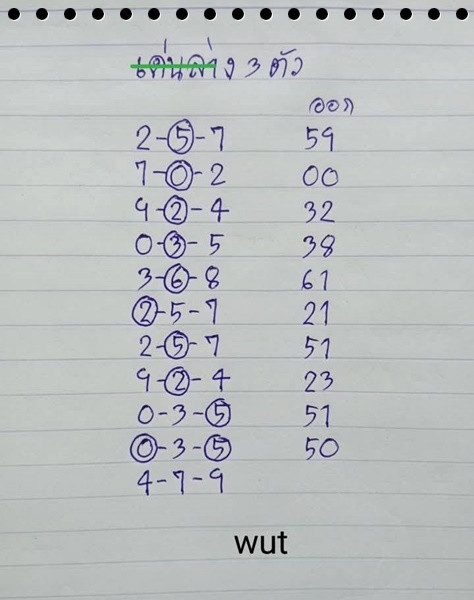 เด่นล่าง 3 ตัว
ออก
2-5-7 59
7-0-2 00
9-2-4 32
0-3-5 38
3-6-8 61
2-5-7 21
2-5-7 51
9-2-4 23
0-3-5 51
0-3-5 50
4-7-9
wut